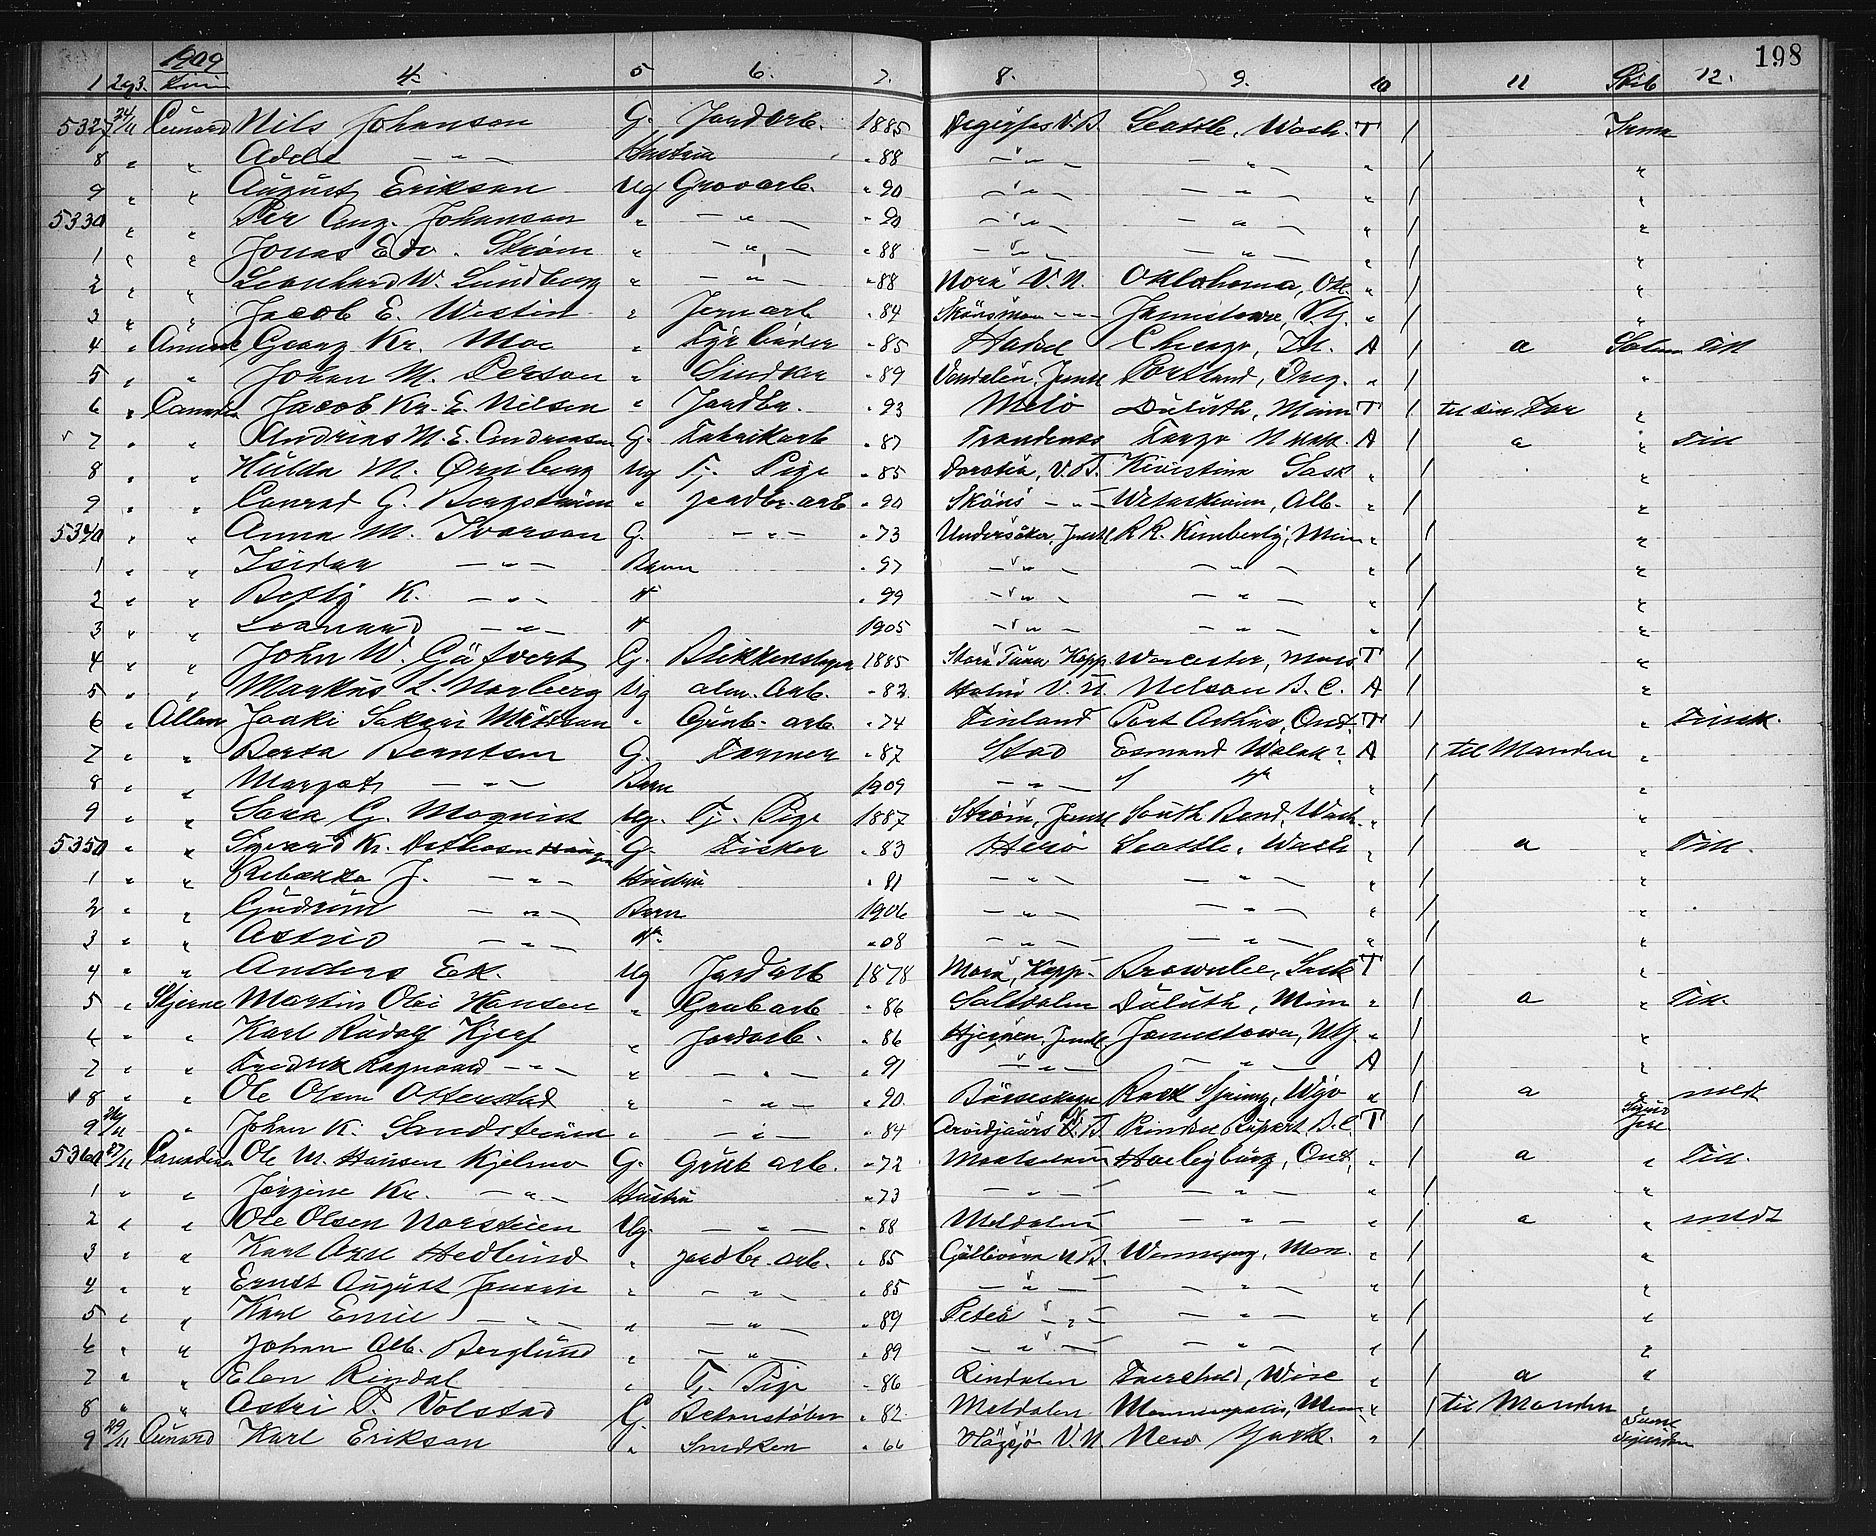 198
1909
1 2 og 3. Linie 4. 5 6. 7. 8. 9. 10 11 Skib 12.
5327 24/11 Cunard Nils Johanson G. Jordarb. 1885 Degerfos V.B. Seattle, Wash. T / Irma
8 " " Adele — " — Hustru " 88 — " — — " — " / "
9 " " August Erikson Ug Grovarb. " 90 — " — — " — " / "
5330 " " Per Aug. Johanson " — " — " 90 — " — — " — " / "
1 " " Jonas Edv. Strøm " — " — " 88 — " — — " — " / "
2 " " Leonhard W. Lundberg " — " — " 88 Nora V.N. Oklohoma, Ok. " / "
3 " " Jacob E. Westin " Jernarb " 84 Skönsmon — " — Jamestown, N.Y. " / "
4 " Georg Kr. Moe " Fyrbøder " 85 Chicago, Ill. A / a
5 " " Johan M. Person " Smedker " 89 Portland, Oreg. " / "
6 " Canadian Jacob Kr. E. Nilsen " Jordbr. " 93 Melö Duluth, Minn T / til sin Far "
7 " " Andrias M. E. Andreasen G. Fabrikarb " 87 Trondenes Fargo N Dak. A / a "
8 " " Hulda M. Ørnberg Ug Tj. Pige " 85 Dorotea, V.B. Sask " / "
9 " " Conrad G. Bergström " Jordbr. arb " 90 Sköns — " — Wetaskiwin, Alb. " / "
5340 " " Anna M. Ivarson G. — " — " 73 Undersåker, Jemtl R.R. Kimberly, Min " / "
1 " " Isidor — " — Barn " 97 — " — — " — " / "
2 " " Betty K. — " — " " 99 — " — — " — " / "
3 " " — " — " 1905 — " — — " — " / "
4 " " John W. Gäfvert G. Blikkenslager 1885 Stora Tuna Kopp Worcester, Mass T / "
5 " " Markus L. Norberg Ug alm. Arb. " 82 Holm V.N. Nelson B.C. A / "
6 " Allan Jaaki Sakari " Grub. arb. " 74 Finland Port Arthur, Ont. T / " Finsk.
7 " " Berta Berntsen G. Farmer " 87 Stod Esmond A / til Manden "
8 " " Margot — " — Barn 1909 — " — " / "
9 " " Sara G. Moqvist Ug. Tj. Pige 1887 Strøm, Jemtl South Bend, Wash. " / "
5350 " " Sigvard Kr. G. Fisker " 83 Herö Seattle, Wash " / a "
1 " " Rebekka J. — " — Hustru " 81 — " — — " — " / "
2 " " Gudrun — " — Barn 1906 — " — — " — " / "
3 " " Astrid — " — " " 08 — " — — " — " / "
4 " " Anders Ek. Ug Jordarb 1878 Mora, Kopp. Brownlee, Sask T / "
5 " Stjerne Martin Olai Hansen " Grubarb " 86 Saltdalen Duluth, Minn " / a "
6 " " Karl Rudolf Kjerf " Jordarb. " 86 Jamestown, N.Y. " / "
7 " " Fredrik Ragnvard — " — " — " — " 91 — " — — " — A / "
8 " " Ole Olsen Ottenstad " — " — " 90 Börseskogn Rock Spring, Wyo " / a " medt
9 26/11 " Johan K. " — " — " 84 Arvidsjaurs N.B. Prindse Rupert B.C. T /
5360 27/11 Canadian Ole M. Hansen Kjelmo G. Grub arb. " 72 Haileyburg, Ont, " / a "
1 " " Jørgine Kr. — " — Hustru " 73 — " — — " — " / "
2 " " Ole Olsen Ug. — " — " 88 Meldalen — " — " / a " medt
3 " " Karl Axel Hedlund " Jordbr. arb. " 85 Gällivare N.B. Winnipeg, Man. " / "
4 " " Ernst August Jonson " — " — " 85 — " — — " — " / "
5 " " Karl Emil — " — " — " — " 89 Piteå — " — — " — " / "
6 " " Johan Alb. Berglund " — " — " 89 — " — — " — " / "
7 " " Elen Rindal " Tj. Pige " 86 Rindalen Wisc " / a "
8 " " Astri P. Volstad G. Betonstøber " 82 Meldalen Minneapolis, Minn " / til Manden "
9 29/11 Cunard Karl Erikson " Smedken " 66 Högsjö V.N. New York. " /